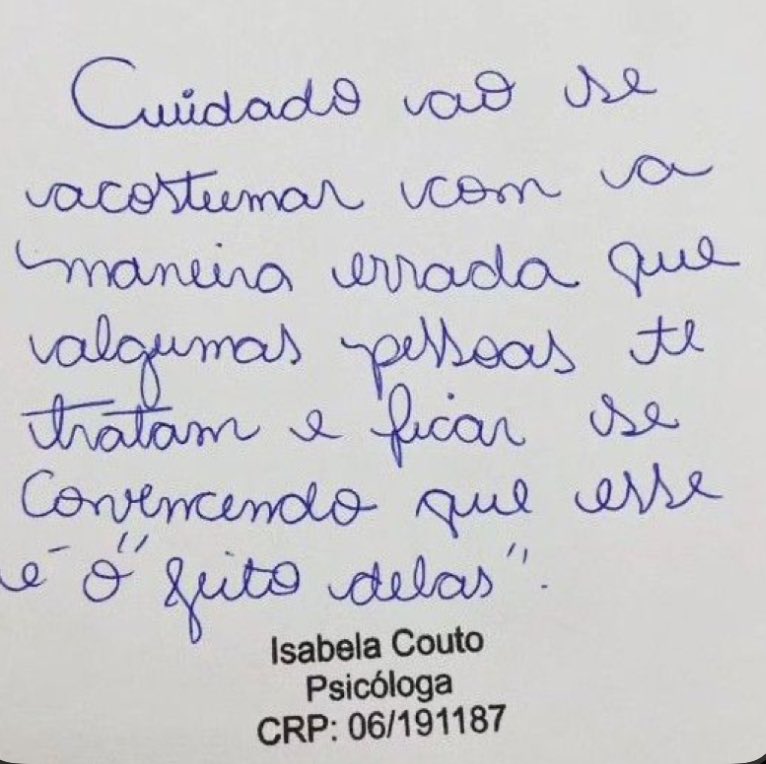 Cuidado ao se
acostumar com a
maneira errada que
algumas pessoas te
tratam e ficar se
convencendo que esse
é o "jeito delas".
Isabela Couto
Psicóloga
CRP: 06/191187